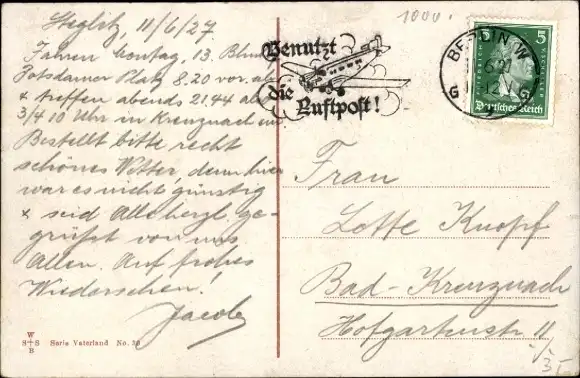 Steglitz, 11/6/27
Fahren Montag, 13. Blu
Potsdamer Platz 8.20 vor. ab
& treffen abends 21.44 ab
3/4 10 Uhr in Kreuznach ein
Bestellt bitte recht
schönes Wetter, denn hier
war es nicht günstig
& seid Alle herzl. ge-
grüßt von uns
Allen. Auf frohes
Wiedersehen!
Jacob
W
S+S
B
Serie Vaterland No. 38
1000.
Benutzt
die
Luftpost!
BERLIN W
G G
5 5
Deutsches Reich
Frau
Lotte Knopf
Bad-Kreuznach
Hofgartenstr 11